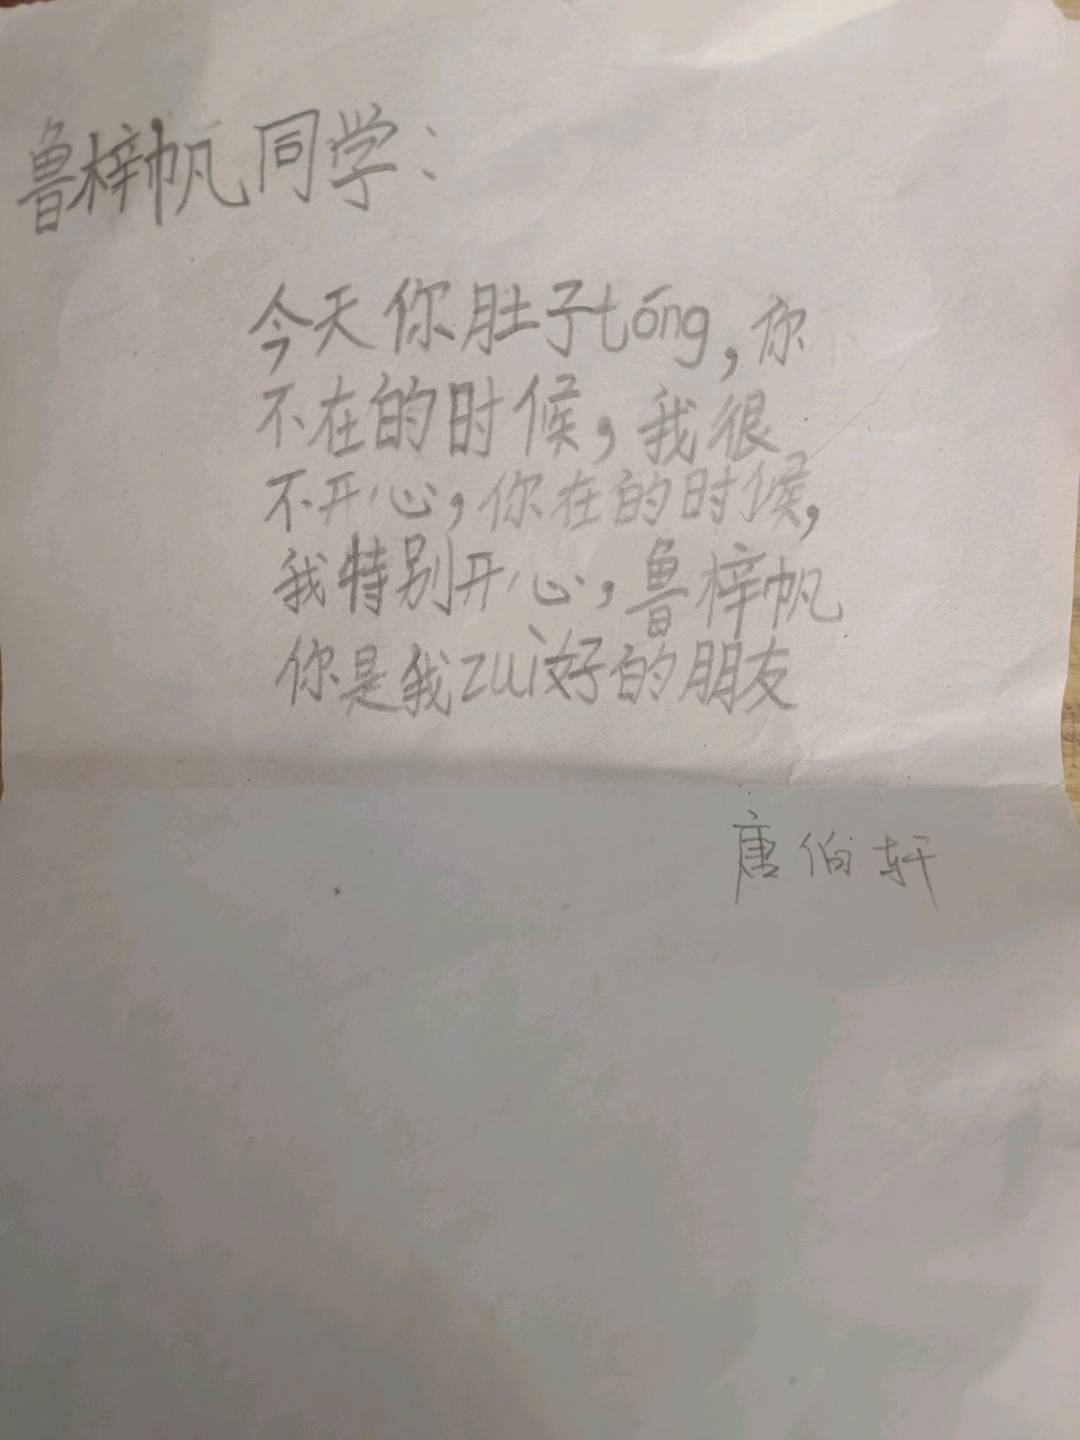 鲁梓帆同学：
今天你肚子tóng，你
不在的时候，我很
不开心，你在的时候，
我特别开心，鲁梓帆
你是我zuì好的朋友
唐伯轩